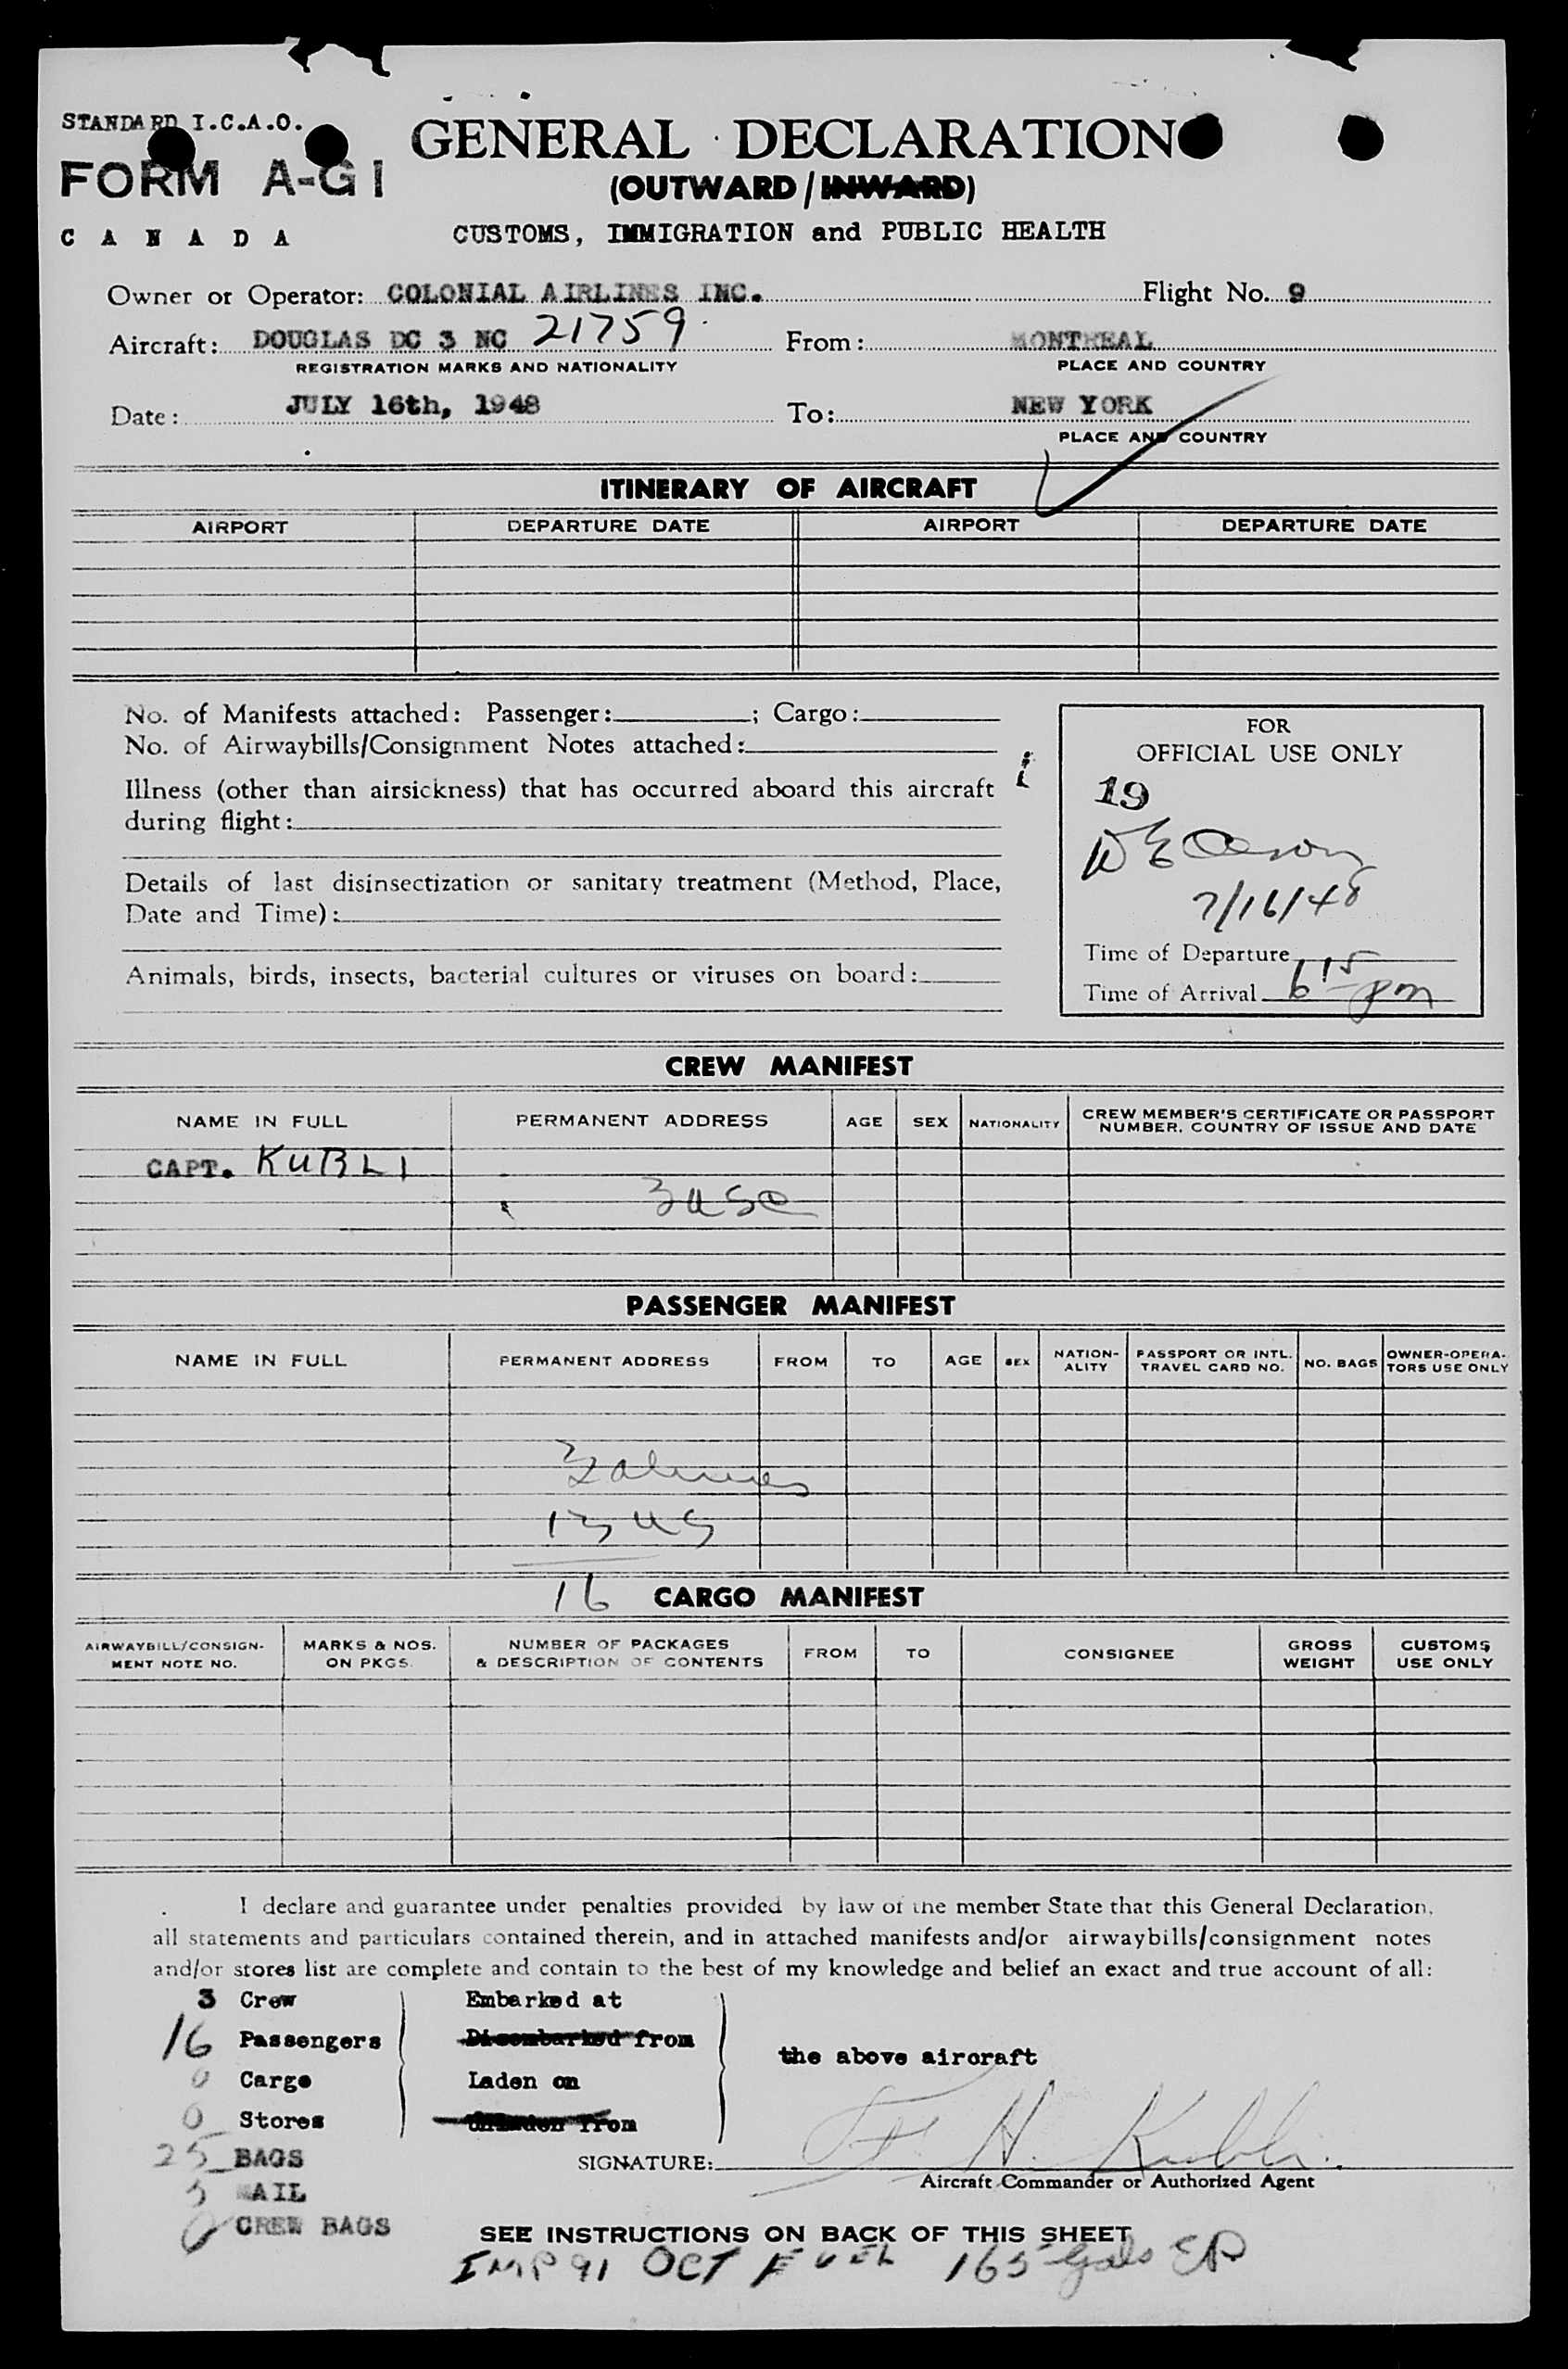 STANDARD I.C.A.O.
FORM A-G1
CANADA
GENERAL DECLARATION
(OUTWARD/INWARD)
CUSTOMS, IMMIGRATION and PUBLIC HEALTH
Owner or Operator: COLONIAL AIRLINES INC. Flight No. 9
Aircraft: DOUGLAS DC 3 NC 21759 From: MONTREAL
REGISTRATION MARKS AND NATIONALITY PLACE AND COUNTRY
Date: JULY 16th, 1948 To: NEW YORK
PLACE AND COUNTRY
ITINERARY OF AIRCRAFT
AIRPORT DEPARTURE DATE AIRPORT DEPARTURE DATE
No. of Manifests attached: Passenger: ; Cargo:
No. of Airwaybills/Consignment Notes attached:
Illness (other than airsickness) that has occurred aboard this aircraft
during flight:
Details of last disinsectization or sanitary treatment (Method, Place,
Date and Time):
Animals, birds, insects, bacterial cultures or viruses on board:
i
FOR
OFFICIAL USE ONLY
19
7/16/48
Time of Departure
Time of Arrival 6 15 pm
CREW MANIFEST
NAME IN FULL PERMANENT ADDRESS AGE SEX NATIONALITY CREW MEMBER'S CERTIFICATE OR PASSPORT
NUMBER, COUNTRY OF ISSUE AND DATE
CAPT. KUBLI
3 USC
PASSENGER MANIFEST
NAME IN FULL PERMANENT ADDRESS FROM TO AGE SEX NATION-
ALITY PASSPORT OR INTL.
TRAVEL CARD NO. NO. BAGS OWNER-OPERA-
TORS USE ONLY
3 aliens
13 US
16
CARGO MANIFEST
AIRWAYBILL/CONSIGN-
MENT NOTE NO. MARKS & NOS.
ON PKGS. NUMBER OF PACKAGES
& DESCRIPTION OF CONTENTS FROM TO CONSIGNEE GROSS
WEIGHT CUSTOMS
USE ONLY
I declare and guarantee under penalties provided by law of the member State that this General Declaration,
all statements and particulars contained therein, and in attached manifests and/or airwaybills/consignment notes
and/or stores list are complete and contain to the best of my knowledge and belief an exact and true account of all:
3 Crew Embarked at
16 Passengers Disembarked from
the above aircraft
0 Cargo Laden on
0 Stores Unladen from
25 BAGS
SIGNATURE: F. H. Kubli
Aircraft Commander or Authorized Agent
5 MAIL
0 CREW BAGS
SEE INSTRUCTIONS ON BACK OF THIS SHEET
IMP 91 OCT FUEL 165 Gals